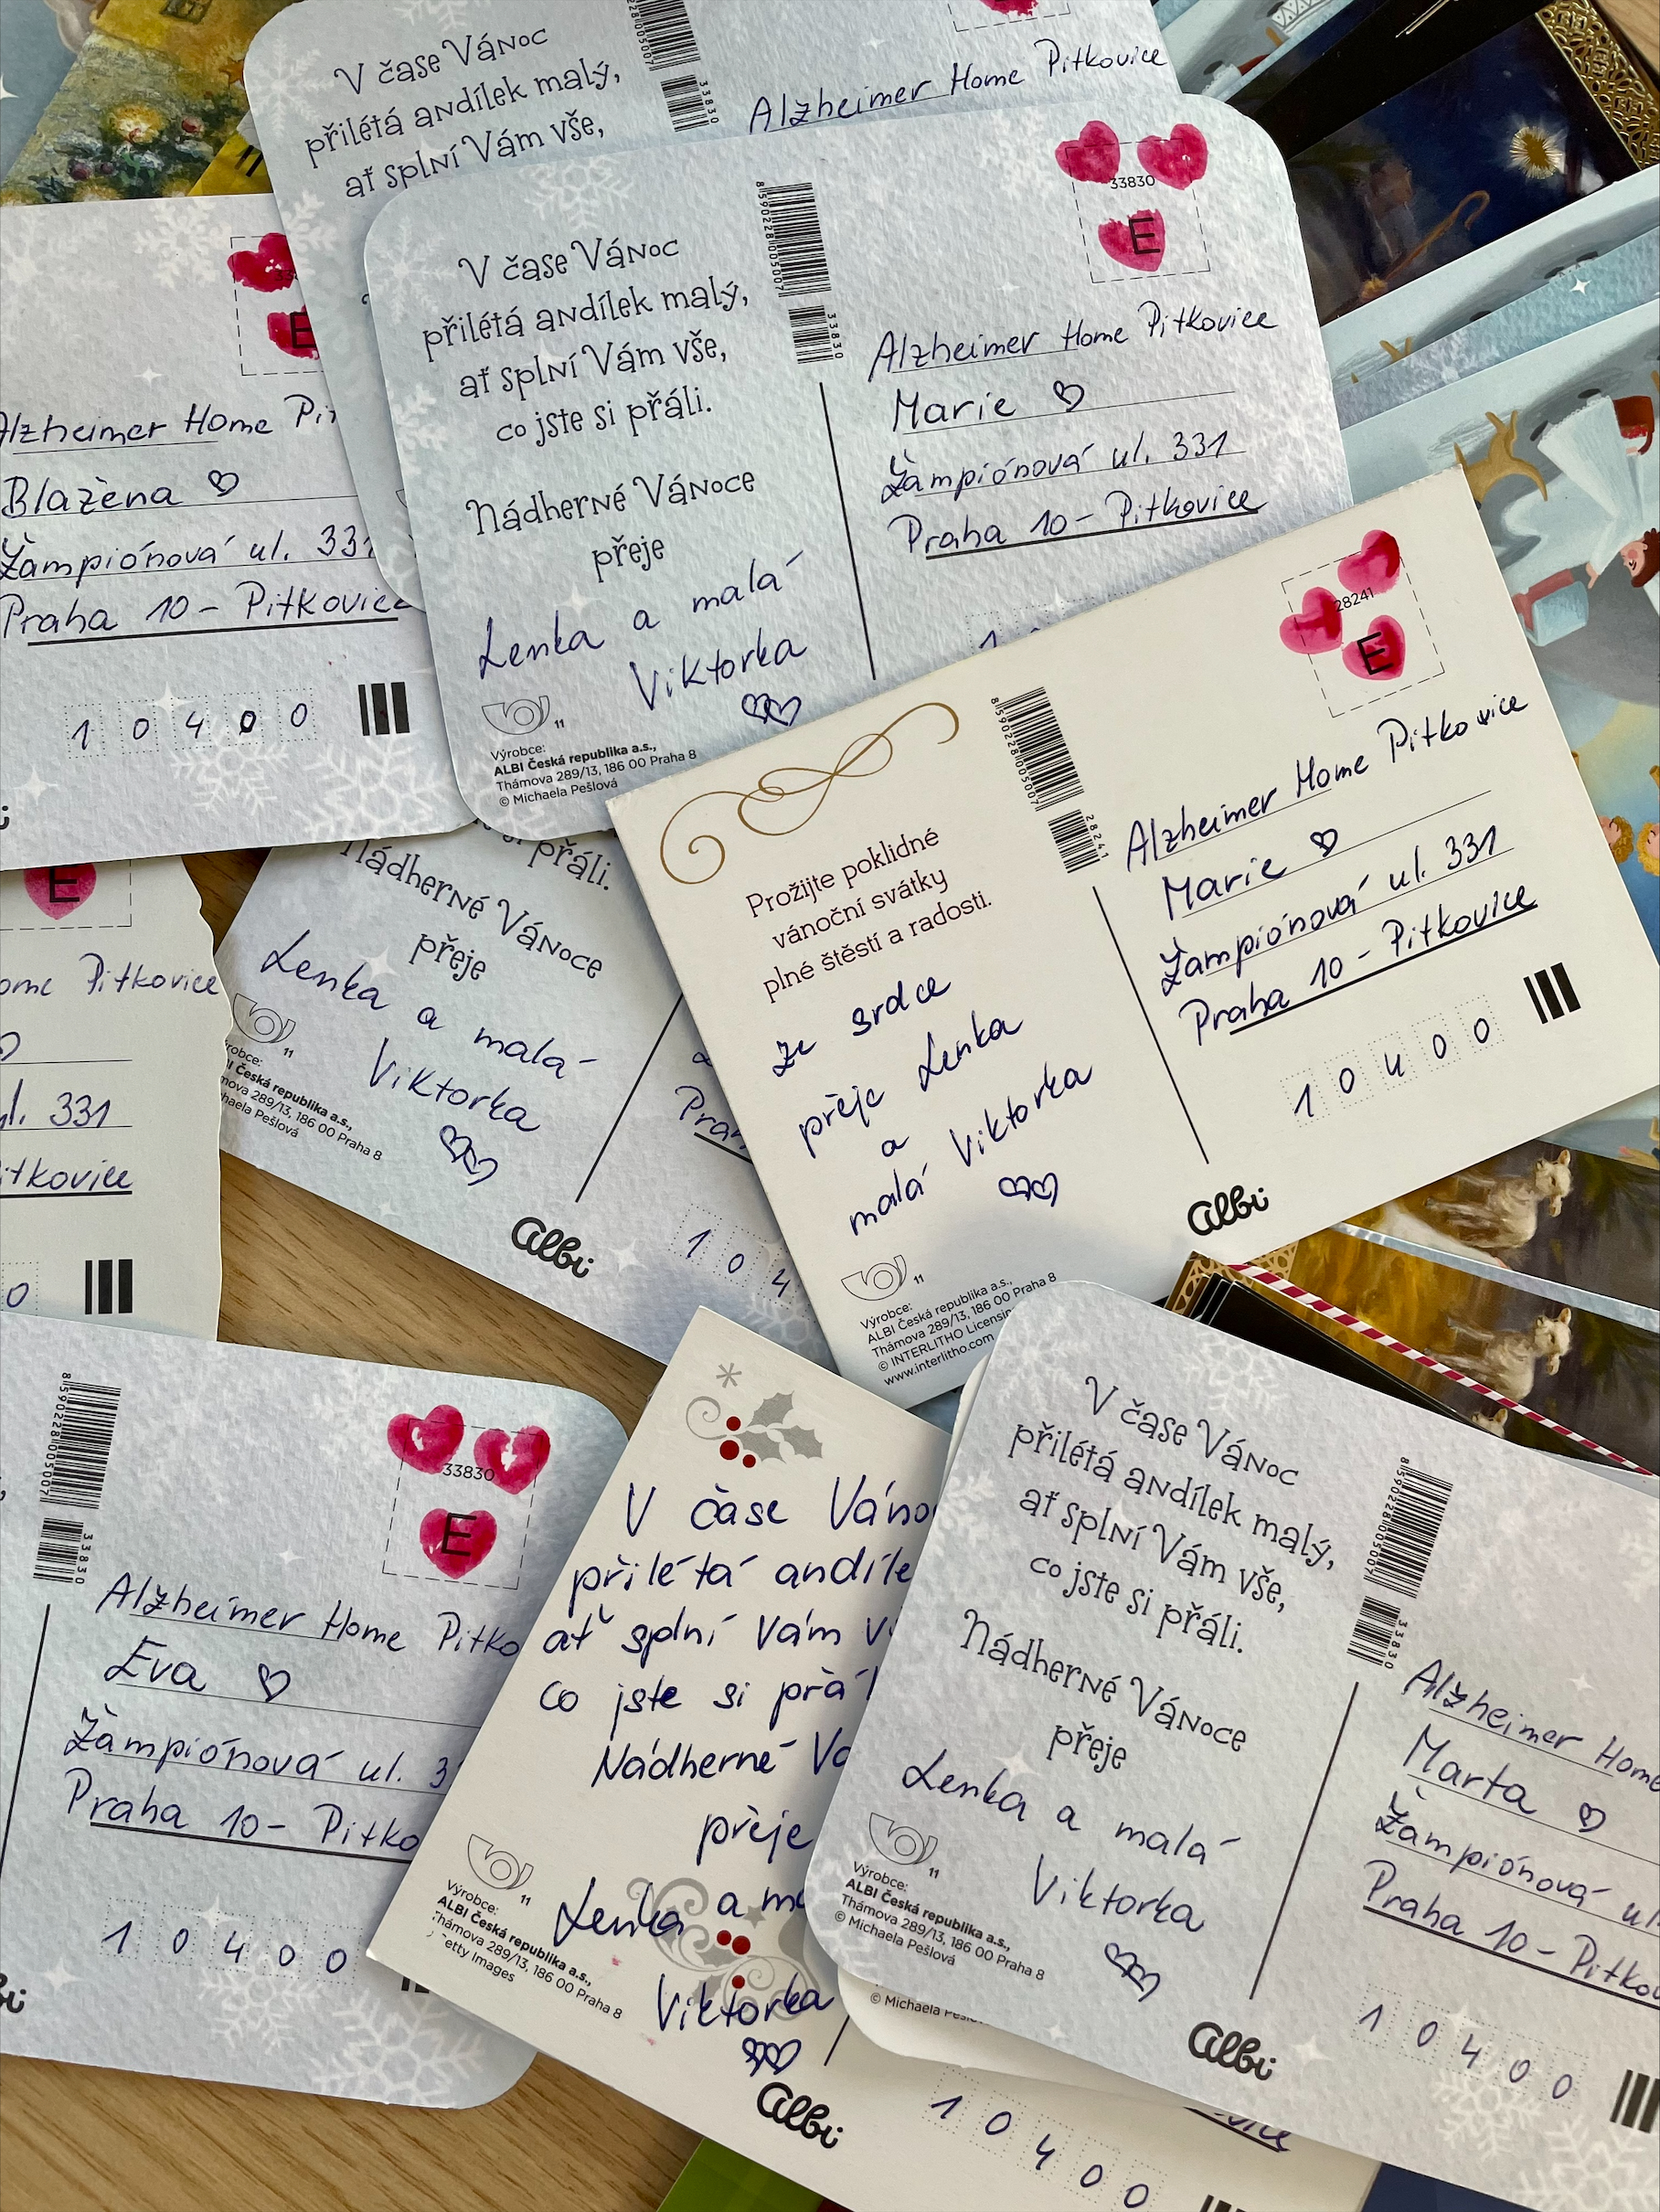 V čase Vánoc
přilétá andílek malý,
ať splní Vám vše,
33830
Alzheimer Home Pitkovice
E
Alzheimer Home
Blažena ♡
Žampiónová ul. 331
Praha 10 - Pitkovice
1 0 4 0 0
V čase Vánoc
přilétá andílek malý,
ať splní Vám vše,
co jste si přáli.
Nádherné Vánoce
přeje
Lenka a malá
Viktorka
♡♡
11
Výrobce:
ALBI Česká republika a.s.,
Thámova 289/13, 186 00 Praha 8
© Michaela Pešlová
8590228005007
33830
33830
E
Alzheimer Home Pitkovice
Marie ♡
Žampiónová ul. 331
Praha 10 - Pitkovice
E
Pitkovice
ul. 331
0
přáli.
Nádherné Vánoce
přeje
Lenka a malá
Viktorka
♡♡
11
Česká republika a.s.,
289/13, 186 00 Praha 8
Pešlová
albi
1 0 4
Prožijte poklidné
vánoční svátky
plné štěstí a radosti.
ze srdce
přeje Lenka
a
malá Viktorka
♡♡
11
Výrobce:
ALBI Česká republika a.s.,
Thámova 289/13, 186 00 Praha 8
© INTERLITHO
www.interlitho.com
8590228005007
28241
28241
E
Alzheimer Home Pitkovice
Marie ♡
Žampiónová ul. 331
Praha 10 - Pitkovice
1 0 4 0 0
albi
8590228005007
33830
33830
E
Alzheimer Home
Eva ♡
Žampiónová ul.
Praha 10 -
1 0 4 0 0
V čase
přilétá
ať splní Vám
co jste si
Nádherné
přeje
Lenka a
Viktorka
♡♡
11
Výrobce:
ALBI Česká republika a.s.,
Thámova 289/13, 186 00 Praha 8
Getty Images
albi
V čase Vánoc
přilétá andílek malý,
ať splní Vám vše,
co jste si přáli.
Nádherné Vánoce
přeje
Lenka a malá
Viktorka
♡♡
11
Výrobce:
ALBI Česká republika a.s.,
Thámova 289/13, 186 00 Praha 8
© Michaela Pešlová
8590228005007
33830
Alzheimer Home
Marta ♡
Žampiónová ul.
Praha 10 -
1 0 4 0 0
albi
© Michaela
1 0 4 0 0